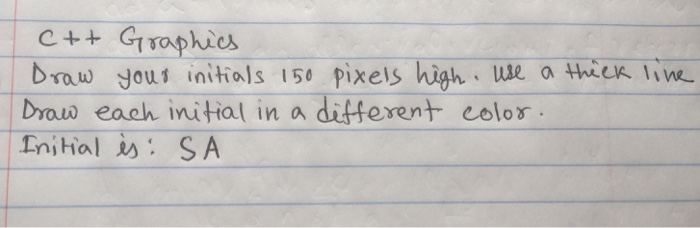 C++ Graphics
Draw your initials 150 pixels high. Use a thick line
Draw each initial in a different color.
Initial is: SA